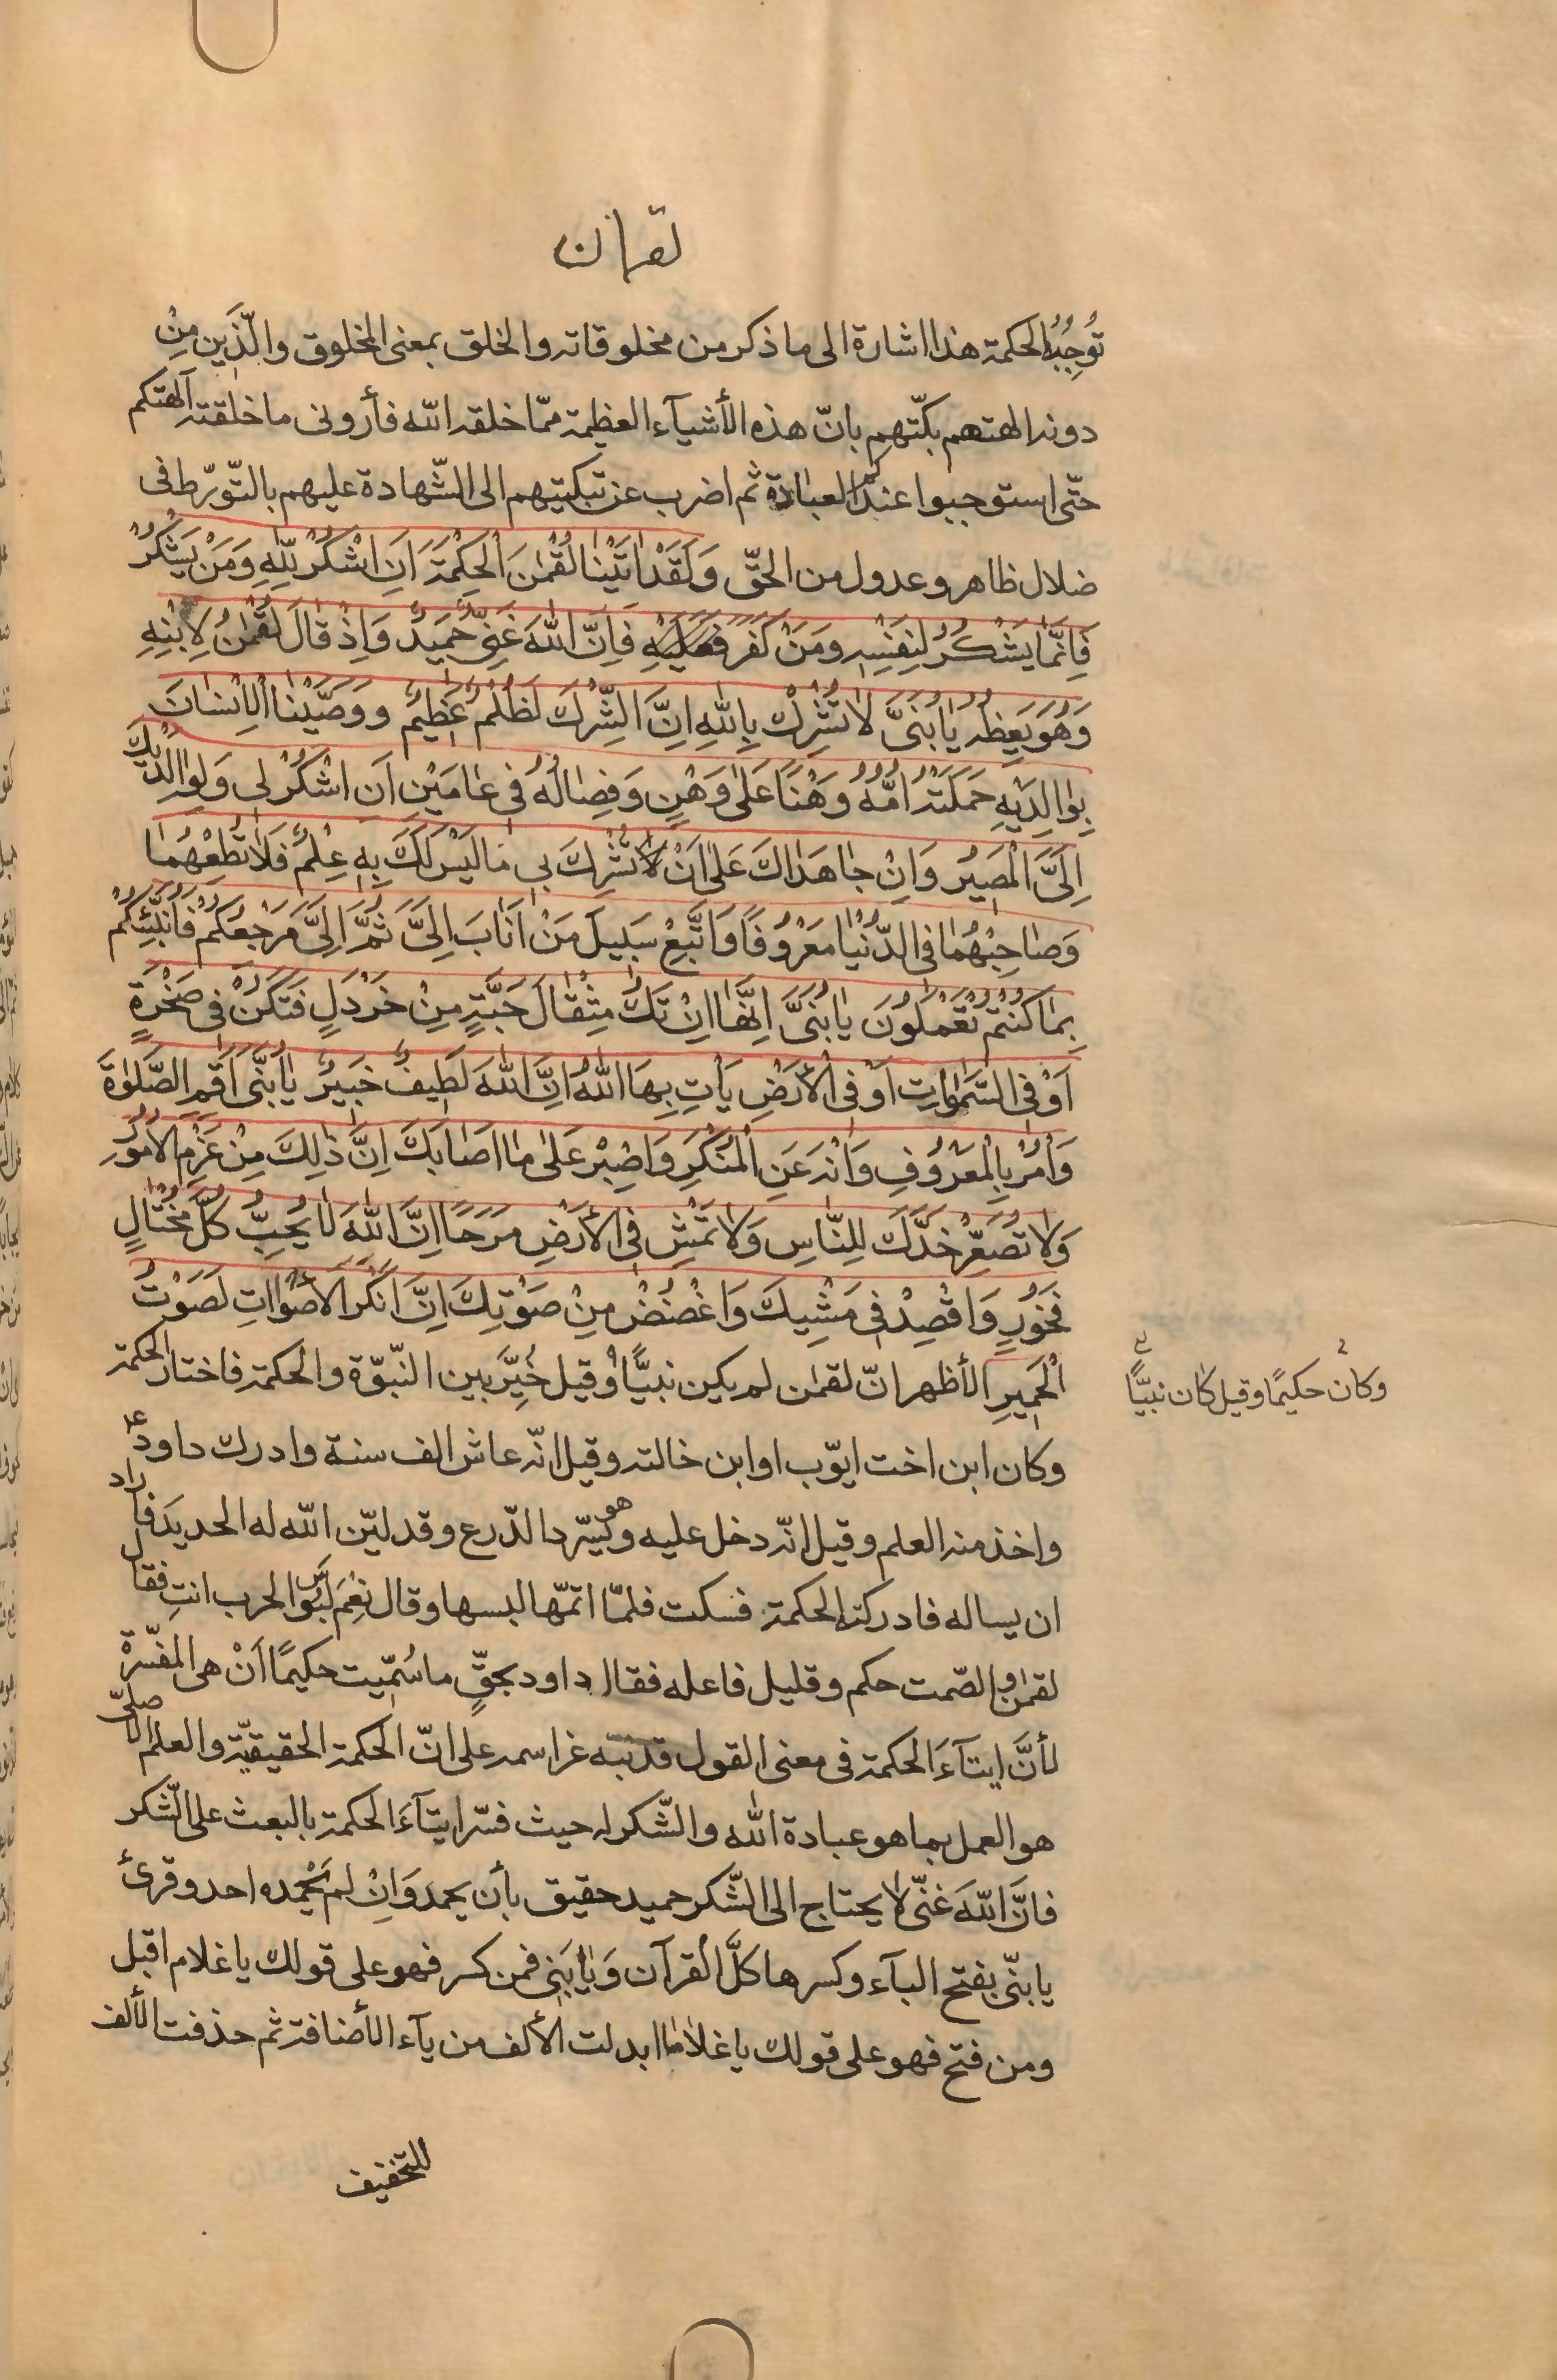 لقمان
تُوجِبُه الحكمة هذا اشارة الى ما ذكر من مخلوقاته والخلق بمعنى المخلوق والّذين مِنْ
دونه الهتهم بكّتهم بانّ هذه الأشيآء العظيمة ممّا خلقه الله فأرونى ما خلقته آلهتكم
حتّى استوجبوا عندكم العبادة ثم اضرب عن تبكيتهم الى الشّهادة عليهم بالتّورّط فى
ضلال ظاهر وعدول من الحقّ وَلَقَدْ اتَيْنا لُقْمٰنَ الْحِكْمَةَ اَنِ اشْكُرْ لِلّٰهِ وَمَنْ يَشْكُرْ
فَاِنَّمٰا يَشْكُرُ لِنَفْسِهِ وَمَنْ كَفَرَ فَاِنَّ اللّٰهَ غَنِىٌّ حَمِيدٌ وَاِذْ قٰالَ لُقْمٰنُ لِابْنِهِ
وَهُوَ يَعِظُهُ يٰا بُنَىَّ لاٰ تُشْرِكْ بِاللّٰهِ اِنَّ الشِّرْكَ لَظُلْمٌ عَظِيمٌ وَوَصَّيْنَا الْاِنْسٰانَ
بِوٰالِدَيْهِ حَمَلَتْهُ اُمُّهُ وَهْنًا عَلىٰ وَهْنٍ وَفِصٰالُهُ فى عٰامَيْنِ اَنِ اشْكُرْ لى وَلِوٰالِدَيْكَ
اِلَىَّ الْمَصيرُ وَاِنْ جٰاهَدٰاكَ عَلىٰ اَنْ لاٰ تُشْرِكَ بى مٰا لَيْسَ لَكَ بِهِ عِلْمٌ فَلاٰ تُطِعْهُمٰا
وَصٰاحِبْهُمٰا فى الدُّنْيٰا مَعْرُوفًا وَاتَّبِعْ سَبيلَ مَنْ اَنٰابَ اِلَىَّ ثُمَّ اِلَىَّ مَرْجِعُكُمْ فَاُنَبِّئُكُمْ
بِمٰا كُنْتُمْ تَعْمَلُونَ يٰا بُنَىَّ اِنَّهٰا اِنْ تَكُ مِثْقٰالَ حَبَّةٍ مِنْ خَرْدَلٍ فَتَكُنْ فى صَخْرَةٍ
اَوْ فى السَّمٰوٰاتِ اَوْ فى الْأَرْضِ يَأْتِ بِهَا اللّٰهُ اِنَّ اللّٰهَ لَطيفٌ خَبيرٌ يٰا بُنَىَّ اَقِمِ الصَّلٰوةَ
وَأْمُرْ بِالْمَعْرُوفِ وَانْهَ عَنِ الْمُنْكَرِ وَاصْبِرْ عَلىٰ مٰا اَصٰابَكَ اِنَّ ذٰلِكَ مِنْ عَزْمِ الْاُمُورِ
وَلاٰ تُصَعِّرْ خَدَّكَ لِلنّاسِ وَلاٰ تَمْشِ فى الْأَرْضِ مَرَحًا اِنَّ اللّٰهَ لاٰ يُحِبُّ كُلَّ مُخْتٰالٍ
فَخُورٍ وَاقْصِدْ فى مَشْيِكَ وَاغْضُضْ مِنْ صَوْتِكَ اِنَّ اَنْكَرَ الْأَصْوٰاتِ لَصَوْتُ
الْحَميرِ الأظهر انّ لقمٰن لم يكن نبيًّا وقيل خُيِّرَ بين النّبوّة والحكمة فاختار الحكمة
وكان حكيمًا وقيل كان نبيًّا
وكان ابن اخت ايّوب او ابن خالته وقيل انّه عاش الف سنة وادرك داود ع
واخذ منه العلم وقيل انّه دخل عليه وهو يسّرد الدّرع وقد ليّن الله له الحديد فأراد
ان يساله فادركته الحكمة فسكت فلمّا اتمّها لبسها وقال نِعْمَ لَبُوسُ الحرب انتِ فقال
لقمٰن الصّمت حكم وقليل فاعله فقال داود بحقٍّ ما سُمّيت حكيمًا اَنْ هى المفسّرة
لأنَّ ايتآءَ الحكمة فى معنى القول قد نبّه عزّ اسمه على انّ الحكمة الحقيقيّة والعلم الأصلىّ
هو العمل بما هو عبادة الله والشّكر له حيث فسّر ايتآءَ الحكمة بالبعث على الشّكر
فانَّ الله غنّى لا يحتاج الى الشّكر حميد حقيق بأن يحمد وَاِنْ لم يَحْمده احد وقرئ
يا بنّى بفتح اليآء وكسرها كلَّ القرآن وَيٰا بَنِى فمن كسر فهو على قولك يا غلام اقبل
ومن فتح فهو على قولك يا غلاما ابدلت الألف من يآء الأضافة ثم حذفت الألف
للتخفيف